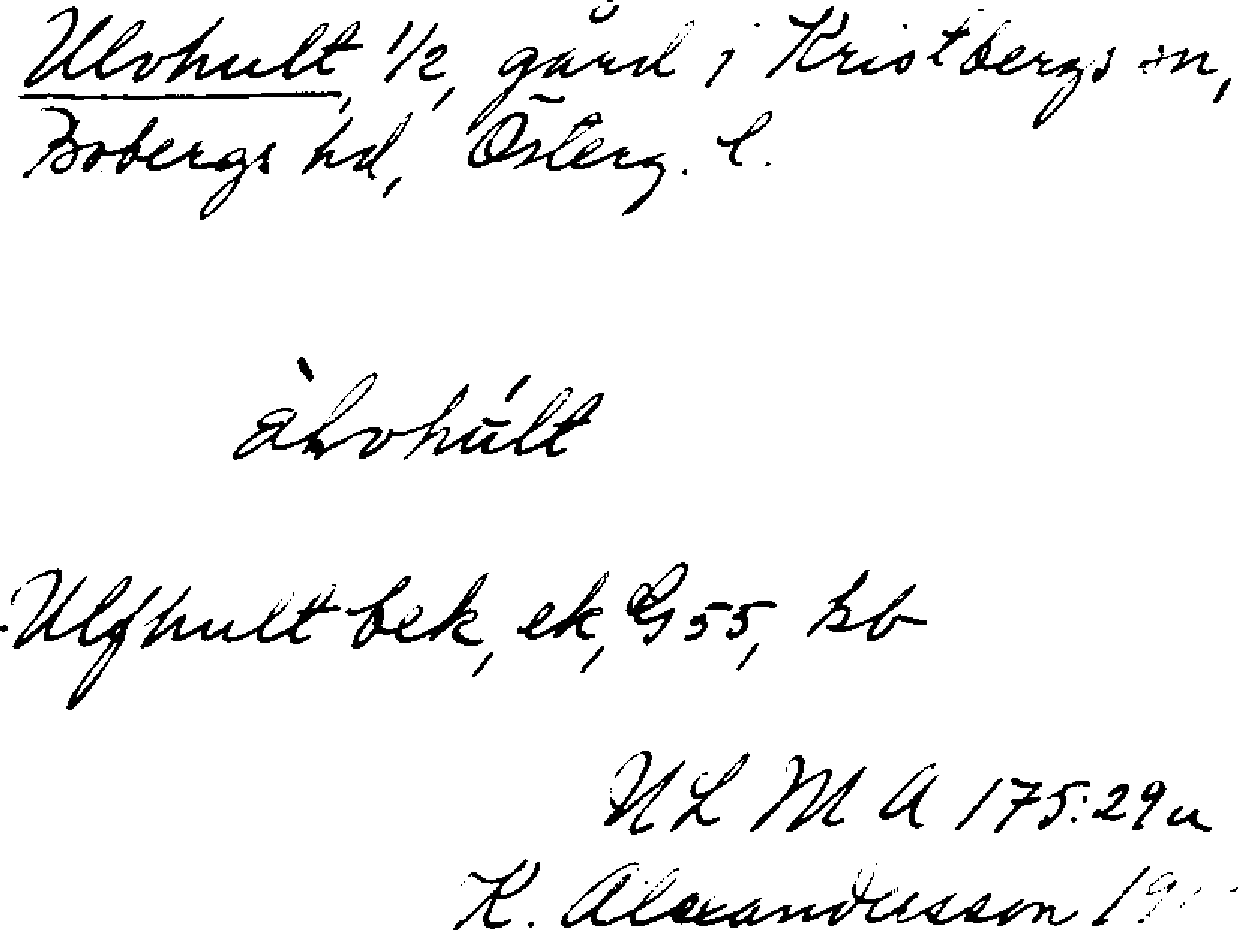 Ulvhult 1/2, gård i Kristbergs sn,
Bobergs hd, Österg. l.
Ulfhult bek, ek, GS 55, kb
NLMA 175:29 u
K. Alexandersson